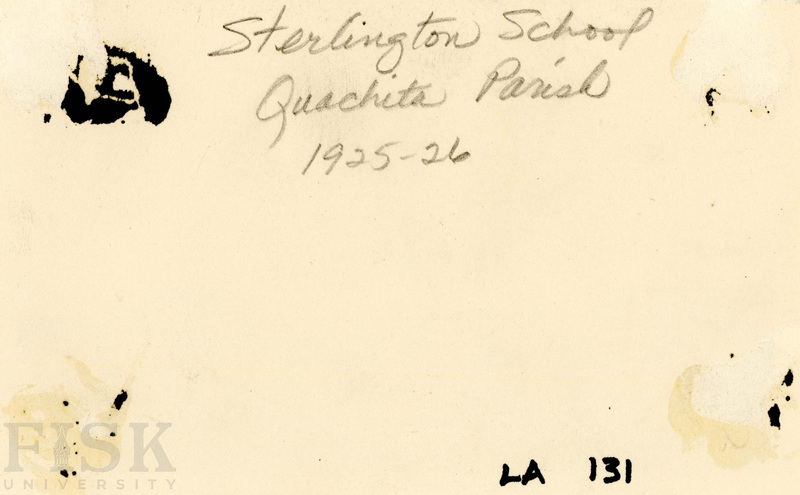 Sterlington School
Quachita Parish
1925-26
LA 131
FISK
UNIVERSITY